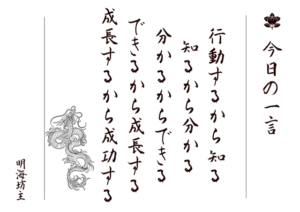 今日の一言
行動するから知る
知るから分かる
分かるからできる
できるから成長する
成長するから成功する
明海坊主